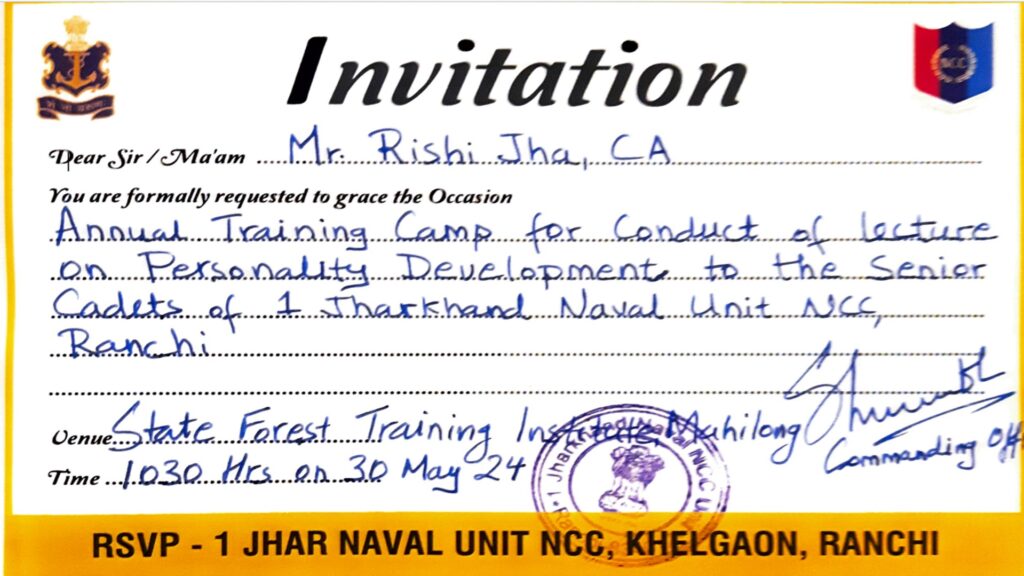 Invitation
NCC
Dear Sir / Ma'am ....Mr. Rishi Jha, CA
You are formally requested to grace the Occasion
Annual Training Camp for Conduct of lecture
on Personality Development to the Senior
Cadets of 1 Jharkhand Naval Unit NCC,
Ranchi
Venue...State Forest Training Institute, Mahilong
Commanding Off
Time ...1030 Hrs on 30 May 24
1 Jharkhand Naval NCC Unit
RSVP - 1 JHAR NAVAL UNIT NCC, KHELGAON, RANCHI